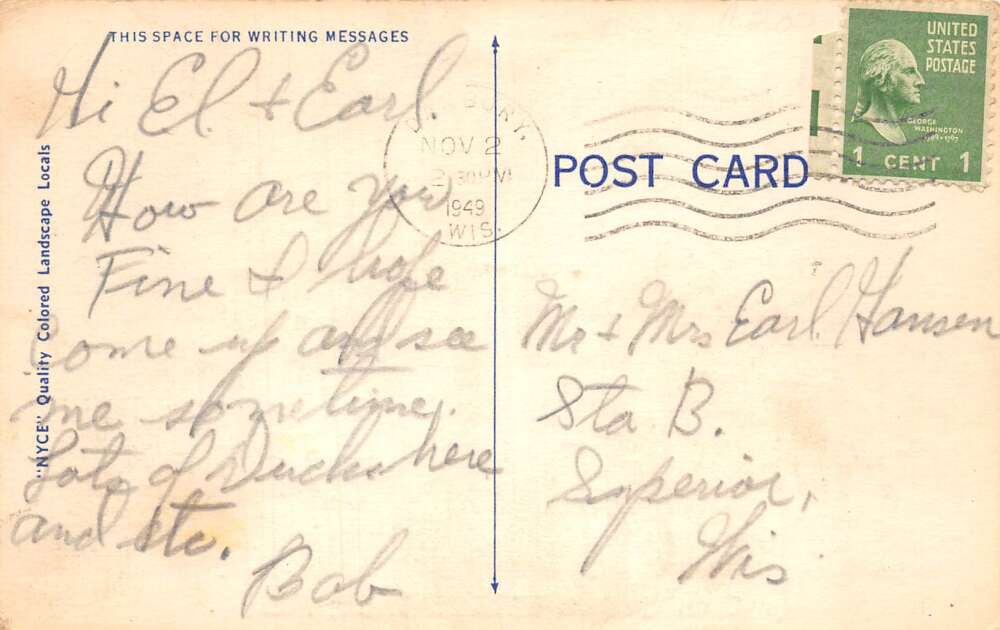 THIS SPACE FOR WRITING MESSAGES
"NYCE" Quality Colored Landscape Locals
Hi El. & Earl.
How are you
Fine I hope
Come up and see
me sometime.
Lots of Ducks here
and etc.
Bob
NOV 2
2 30 PM
1949
WIS.
POST CARD
UNITED
STATES
POSTAGE
GEORGE
WASHINGTON
1 CENT 1
Mr & Mrs Earl Hansen
Sta B.
Superior,
Wis